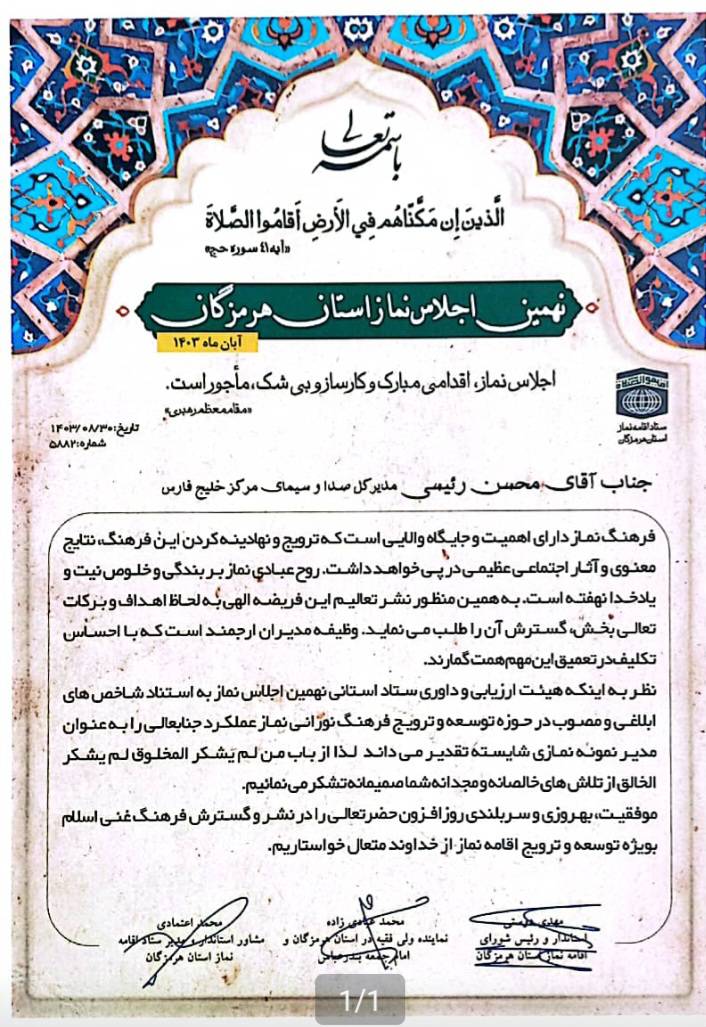 باسمه تعالی
الَّذينَ إِن مَكَّنّاهُم فِي الأَرضِ أَقامُوا الصَّلاةَ
«آیه ۴۱ سوره حج»
نهمین اجلاس نماز استان هرمزگان
آبان ماه ۱۴۰۳
اجلاس نماز، اقدامی مبارک و کارساز و بی شک، مأجور است.
«مقام معظم رهبری»
ستاد اقامه نماز
استان هرمزگان
تاریخ: ۱۴۰۳/۰۸/۳۰
شماره: ۵۸۸۲
جناب آقای محسن رئیسی مدیرکل صدا و سیمای مرکز خلیج فارس
فرهنگ نماز دارای اهمیت و جایگاه والایی است که ترویج و نهادینه کردن این فرهنگ، نتایج
معنوی و آثار اجتماعی عظیمی در پی خواهد داشت. روح عبادی نماز بر بندگی و خلوص نیت و
یاد خدا نهفته است. به همین منظور نشر تعالیم این فریضه الهی به لحاظ اهداف و برکات
تعالی بخش، گسترش آن را طلب می نماید. وظیفه مدیران ارجمند است که با احساس
تکلیف در تعمیق این مهم همت گمارند.
نظر به اینکه هیئت ارزیابی و داوری ستاد استانی نهمین اجلاس نماز به استناد شاخص های
ابلاغی و مصوب در حوزه توسعه و ترویج فرهنگ نورانی نماز عملکرد جنابعالی را به عنوان
مدیر نمونه نمازی شایسته تقدیر می داند لذا از باب من لم یَشکر المخلوق لم یشکر
الخالق از تلاش های خالصانه و مجدانه شما صمیمانه تشکر می نمائیم.
موفقیت، بهروزی و سربلندی روز افزون حضرتعالی را در نشر و گسترش فرهنگ غنی اسلام
بویژه توسعه و ترویج اقامه نماز از خداوند متعال خواستاریم.
مهدی
استاندار و رئیس شورای
اقامه نماز استان هرمزگان
محمد عبادی زاده
نماینده ولی فقیه در استان هرمزگان و
امام جمعه بندرعباس
محمد اعتمادی
مشاور استاندار و مدیر ستاد اقامه
نماز استان هرمزگان
1/1